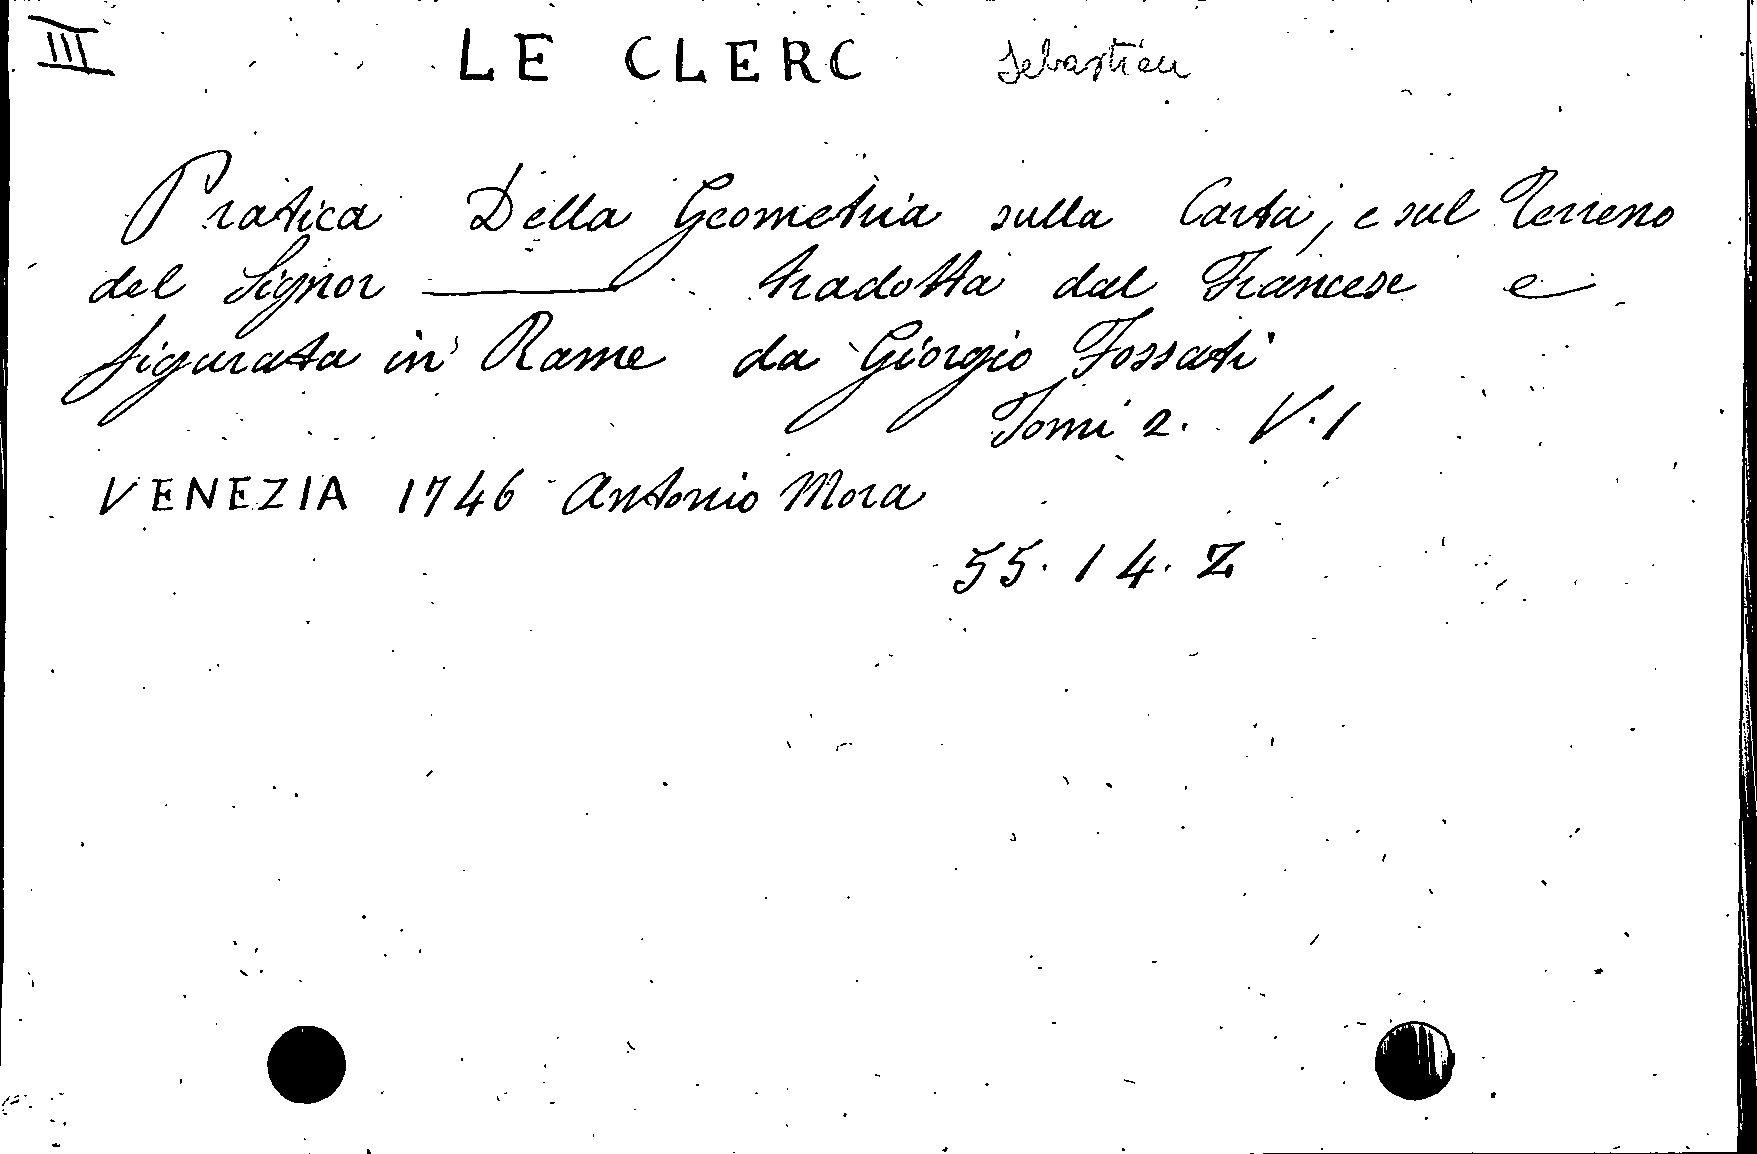 III LE CLERC Sebastien
Pratica Della Geometria sulla Carta, e sul Terreno
del Signor ——— tradotta dal Francese e
figurata in Rame da Giorgio Fossati
Tomi 2. V.1
VENEZIA 1746 Antonio Mora
55.14.Z